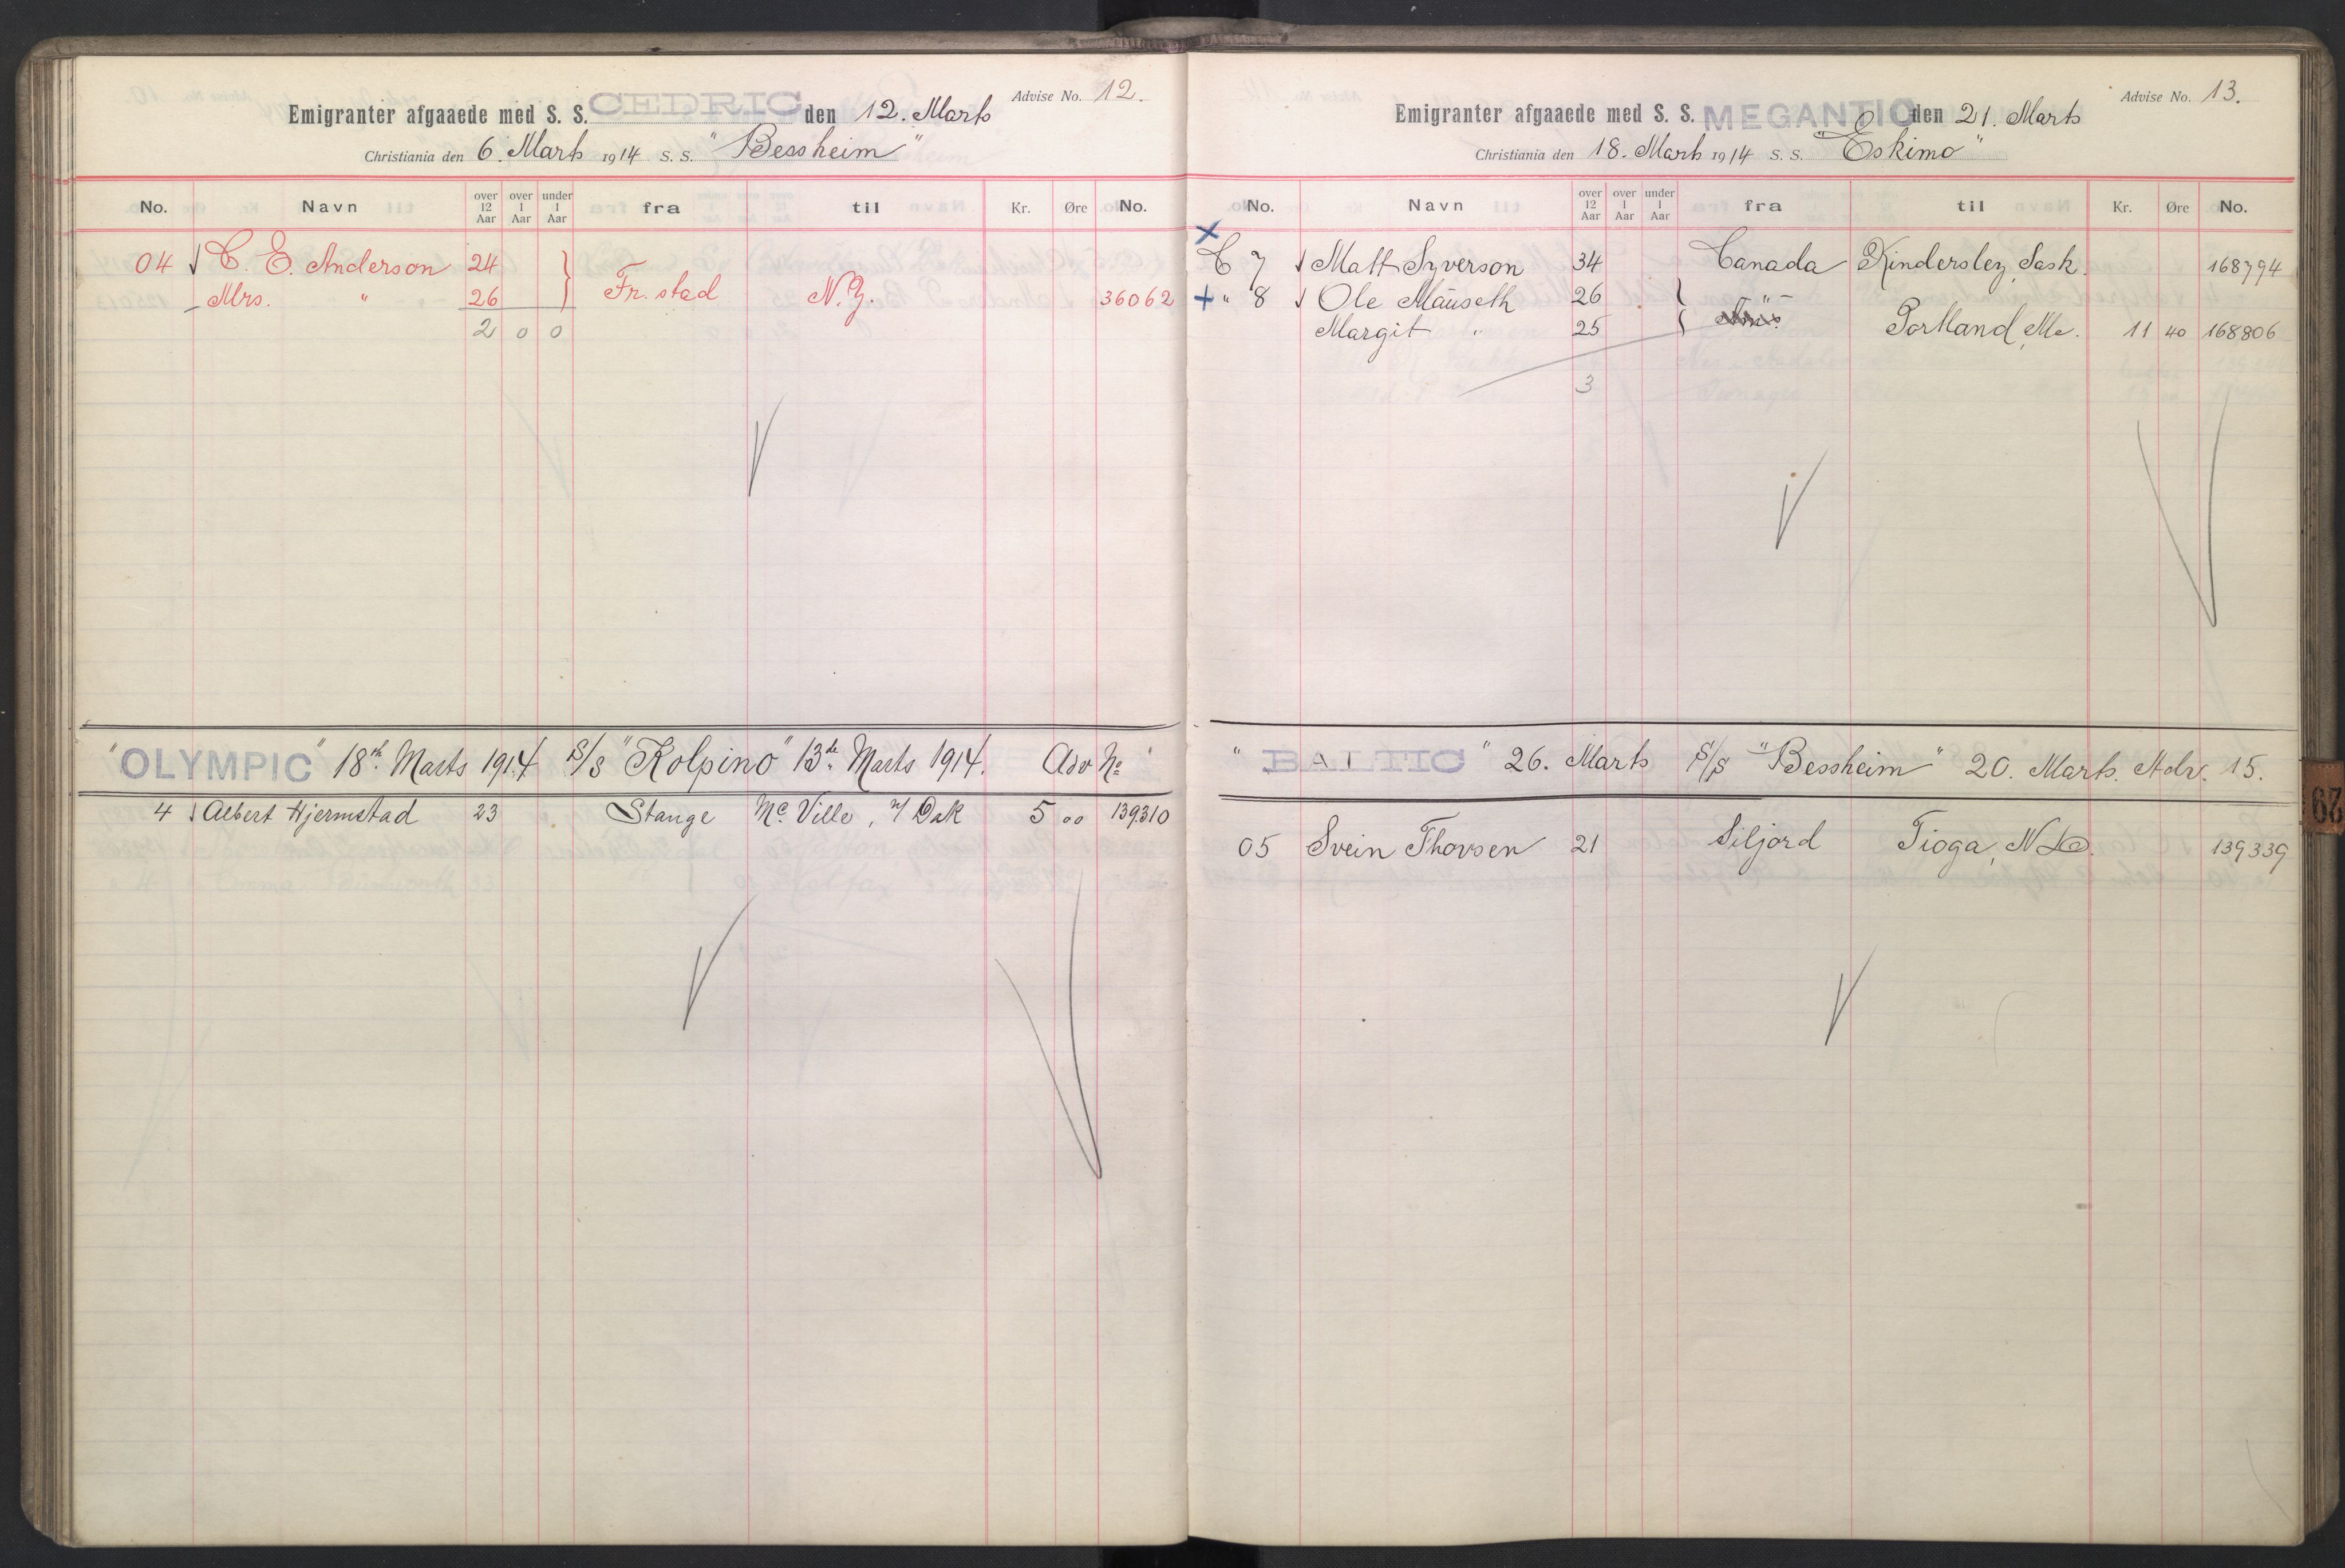 Advise No. 12.
Emigranter afgaaede med S. S. CEDRIC den 12. Marts
Christiania den 6. Marts 1914 S. S. "Bessheim"
No. Navn over 12 Aar over 1 Aar under 1 Aar fra til Kr. Øre No.
04 C. E. Anderson 24
Mrs. " 26 Fr. stad N.Y. 36062
2 0 0
"OLYMPIC" 18th Marts 1914 S/S "Kolpino" 13de Marts 1914. Adv No
4 Albert Hjermstad 23 Stange Mc. Ville, N/ Dak 5 00 139310
Advise No. 13.
Emigranter afgaaede med S. S. MEGANTIC den 21. Marts
Christiania den 18. Marts 1914 S. S. "Eskimo"
No. Navn over 12 Aar over 1 Aar under 1 Aar fra til Kr. Øre No.
C 7 Matt Syverson 34 Canada Kindersley, Sask. 168794
" 8 Ole Mauseth 26 - " -
Margit " 25 Portland, Me. 11 40 168806
3
" BALTIC " 26. Marts S/S "Bessheim" 20. Marts. Adv. 15.
05 Svein Thovsen 21 Siljord Tioga, N.D. 139339
29